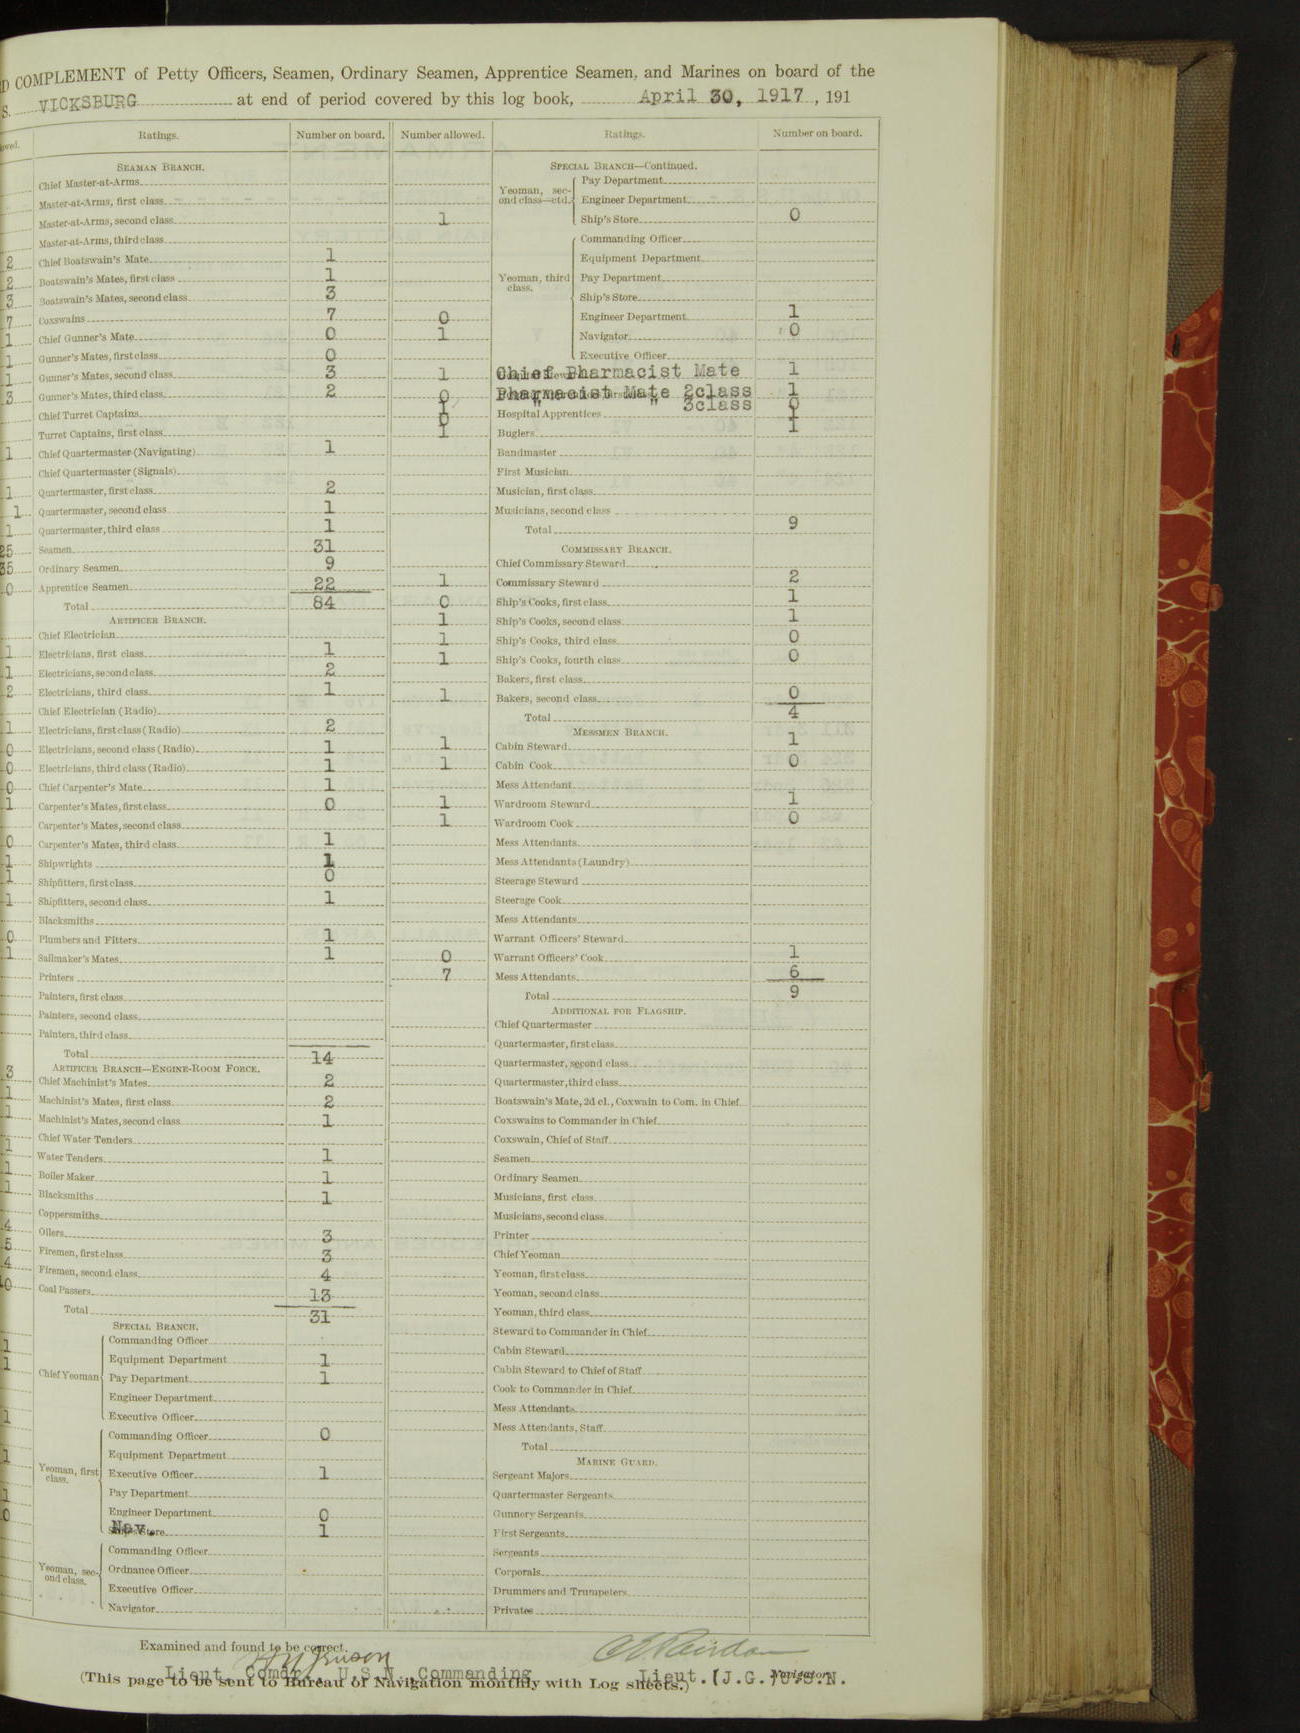 RD COMPLEMENT of Petty Officers, Seamen, Ordinary Seamen, Apprentice Seamen, and Marines on board of the
S. VICKSBURG at end of period covered by this log book, April 30, 1917, 191
owed. Ratings. Number on board. Number allowed. Ratings. Number on board.
SEAMAN BRANCH.
Chief Master-at-Arms
Master-at-Arms, first class
Master-at-Arms, second class
Master-at-Arms, third class
2 Chief Boatswain's Mate 1
2 Boatswain's Mates, first class 1
3 Boatswain's Mates, second class 3
7 Coxswains 7
1 Chief Gunner's Mate 0
1 Gunner's Mates, first class 0
1 Gunner's Mates, second class 3
3 Gunner's Mates, third class 2
Chief Turret Captains
Turret Captains, first class
1 Chief Quartermaster (Navigating) 1
Chief Quartermaster (Signals)
1 Quartermaster, first class 2
1 Quartermaster, second class 1
1 Quartermaster, third class 1
25 Seamen 31
35 Ordinary Seamen 9
0 Apprentice Seamen 22
Total 84
ARTIFICER BRANCH.
Chief Electrician
1 Electricians, first class 1
1 Electricians, second class 2
2 Electricians, third class 1
Chief Electrician (Radio)
1 Electricians, first class (Radio) 2
0 Electricians, second class (Radio) 1
0 Electricians, third class (Radio) 1
0 Chief Carpenter's Mate 1
1 Carpenter's Mates, first class 0
Carpenter's Mates, second class
0 Carpenter's Mates, third class 1
1 Shipwrights 1
1 Shipfitters, first class 0
1 Shipfitters, second class 1
Blacksmiths
0 Plumbers and Fitters 1
1 Sailmaker's Mates 1
Printers
Painters, first class
Painters, second class
Painters, third class
Total 14
ARTIFICER BRANCH—ENGINE-ROOM FORCE.
3 Chief Machinist's Mates 2
1 Machinist's Mates, first class 2
1 Machinist's Mates, second class 1
Chief Water Tenders
1 Water Tenders 1
1 Boiler Maker 1
1 Blacksmiths 1
Coppersmiths
4 Oilers 3
5 Firemen, first class 3
4 Firemen, second class 4
0 Coal Passers 13
Total 31
SPECIAL BRANCH.
Chief Yeoman
1 Commanding Officer
1 Equipment Department 1
Pay Department 1
Engineer Department
1 Executive Officer
Yeoman, first class.
Commanding Officer 0
1 Equipment Department
Executive Officer 1
1 Pay Department
0 Engineer Department 0
Nav. Ship's Store 1
Yeoman, second class.
Commanding Officer
Ordnance Officer
Executive Officer
Navigator
SPECIAL BRANCH—Continued.
Yeoman, second class—ctd.
Pay Department
Engineer Department
1 Ship's Store 0
Yeoman, third class.
Commanding Officer
Equipment Department
Pay Department
Ship's Store
0 Engineer Department 1
1 Navigator 0
Executive Officer
1 Chief Pharmacist Mate 1
0 Pharmacist Mate 2class 1
1 " " 3class 0
0 Hospital Apprentices 1
1 Buglers 1
Bandmaster
First Musician
Musician, first class
Musicians, second class
Total 9
COMMISSARY BRANCH.
Chief Commissary Steward
1 Commissary Steward 2
0 Ship's Cooks, first class 1
1 Ship's Cooks, second class 1
1 Ship's Cooks, third class 0
1 Ship's Cooks, fourth class 0
Bakers, first class
1 Bakers, second class 0
Total 4
MESSMEN BRANCH.
1 Cabin Steward 1
1 Cabin Cook 0
Mess Attendant
1 Wardroom Steward 1
1 Wardroom Cook 0
Mess Attendants
Mess Attendants (Laundry)
Steerage Steward
Steerage Cook
Mess Attendants
Warrant Officers' Steward
0 Warrant Officers' Cook 1
7 Mess Attendants 6
Total 9
ADDITIONAL FOR FLAGSHIP.
Chief Quartermaster
Quartermaster, first class
Quartermaster, second class
Quartermaster, third class
Boatswain's Mate, 2d cl., Coxwain to Com. in Chief
Coxswains to Commander in Chief
Coxswain, Chief of Staff
Seamen
Ordinary Seamen
Musicians, first class
Musicians, second class
Printer
Chief Yeoman
Yeoman, first class
Yeoman, second class
Yeoman, third class
Steward to Commander in Chief
Cabin Steward
Cabin Steward to Chief of Staff
Cook to Commander in Chief
Mess Attendants
Mess Attendants, Staff
Total
MARINE GUARD.
Sergeant Majors
Quartermaster Sergeants
Gunnery Sergeants
First Sergeants
Sergeants
Corporals
Drummers and Trumpeters
Privates
Examined and found to be correct.
Lieut. Comdr. U.S.N. Commanding Lieut. (J.G.) U.S.N. Navigator.
(This page to be sent to Bureau of Navigation monthly with Log sheets.)